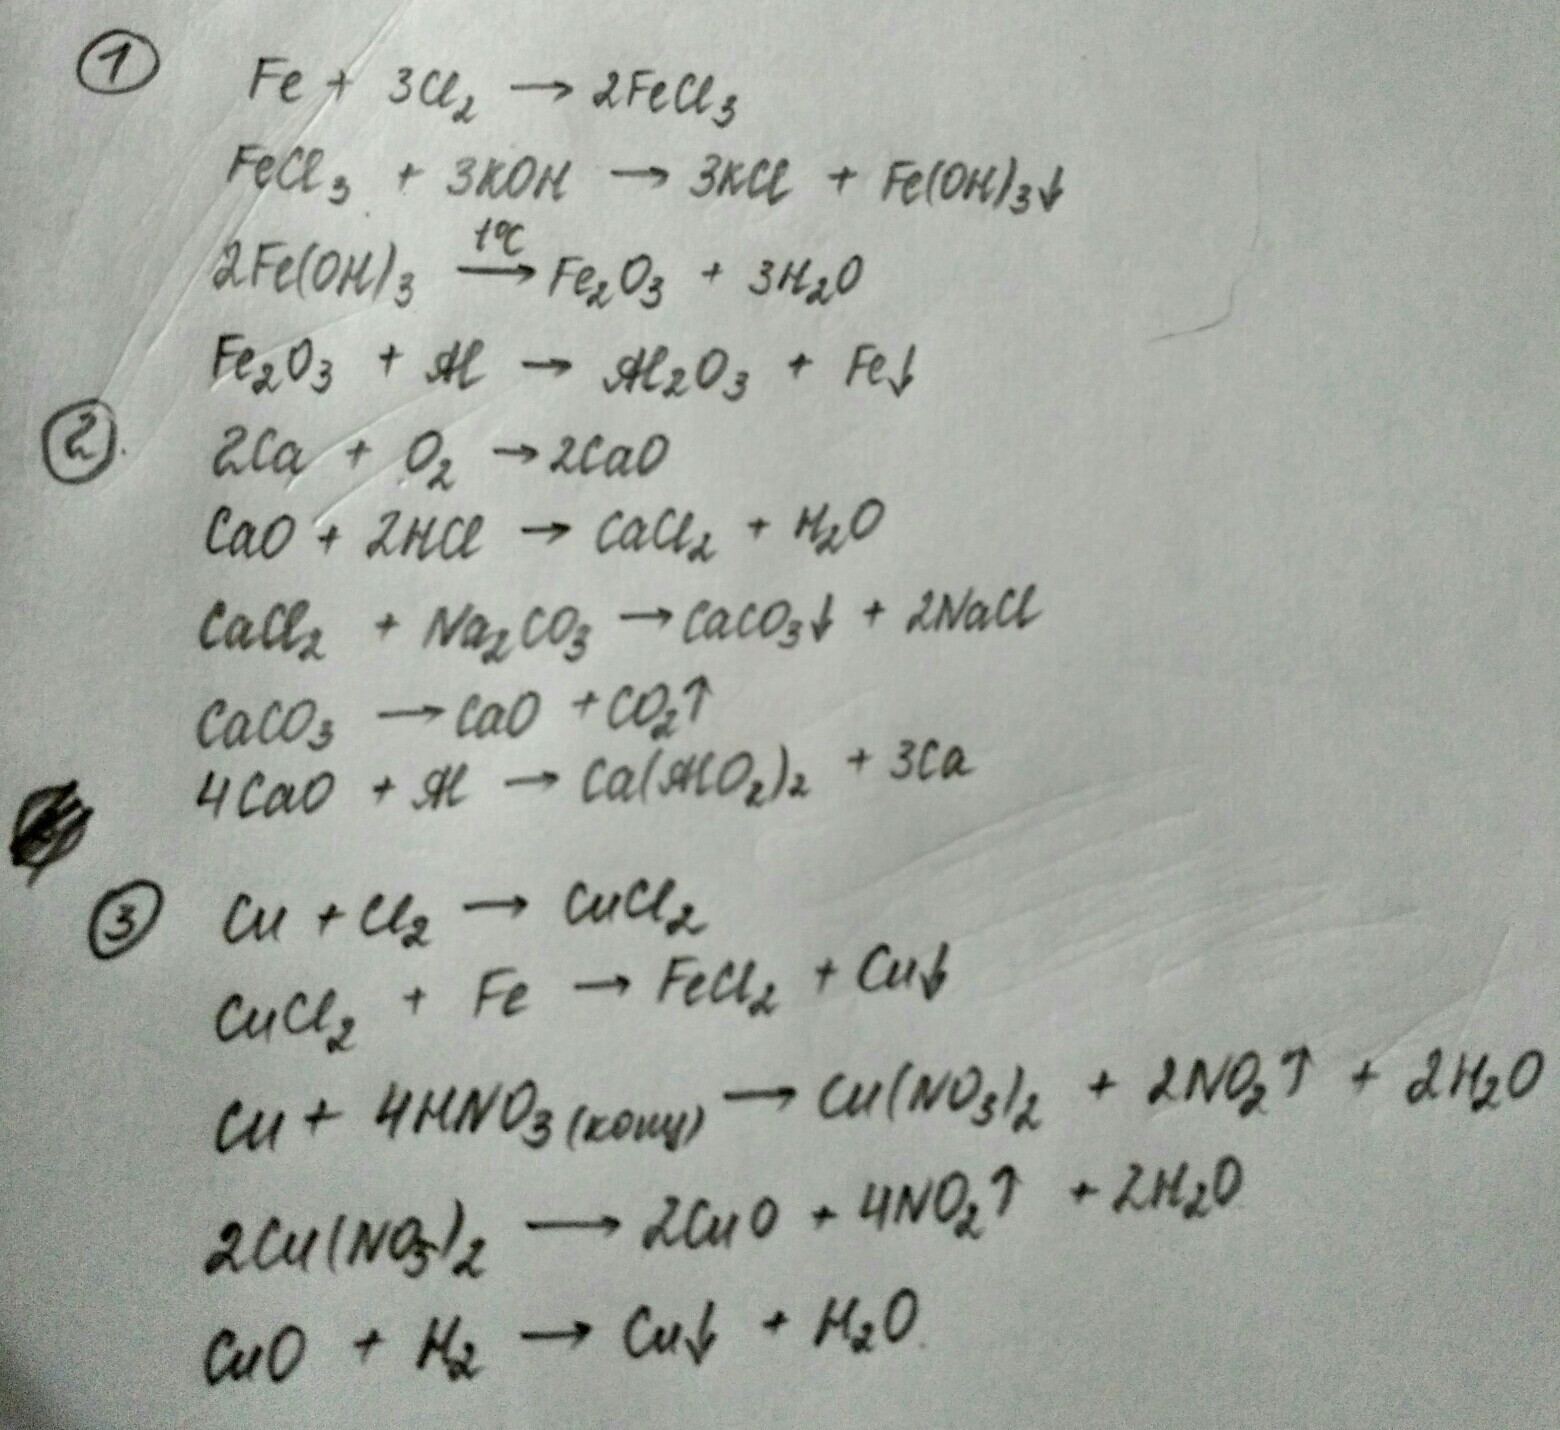 ① Fe + 3Cl₂ → 2FeCl₃
FeCl₃ + 3KOH → 3KCl + Fe(OH)₃↓
2Fe(OH)₃ →(t°C) Fe₂O₃ + 3H₂O
Fe₂O₃ + Al → Al₂O₃ + Fe↓
②. 2Ca + O₂ → 2CaO
CaO + 2HCl → CaCl₂ + H₂O
CaCl₂ + Na₂CO₃ → CaCO₃↓ + 2NaCl
CaCO₃ → CaO + CO₂↑
4CaO + Al → Ca(AlO₂)₂ + 3Ca
③ Cu + Cl₂ → CuCl₂
CuCl₂ + Fe → FeCl₂ + Cu↓
Cu + 4HNO₃ (конц) → Cu(NO₃)₂ + 2NO₂↑ + 2H₂O
2Cu(NO₃)₂ → 2CuO + 4NO₂↑ + 2H₂O
CuO + H₂ → Cu↓ + H₂O